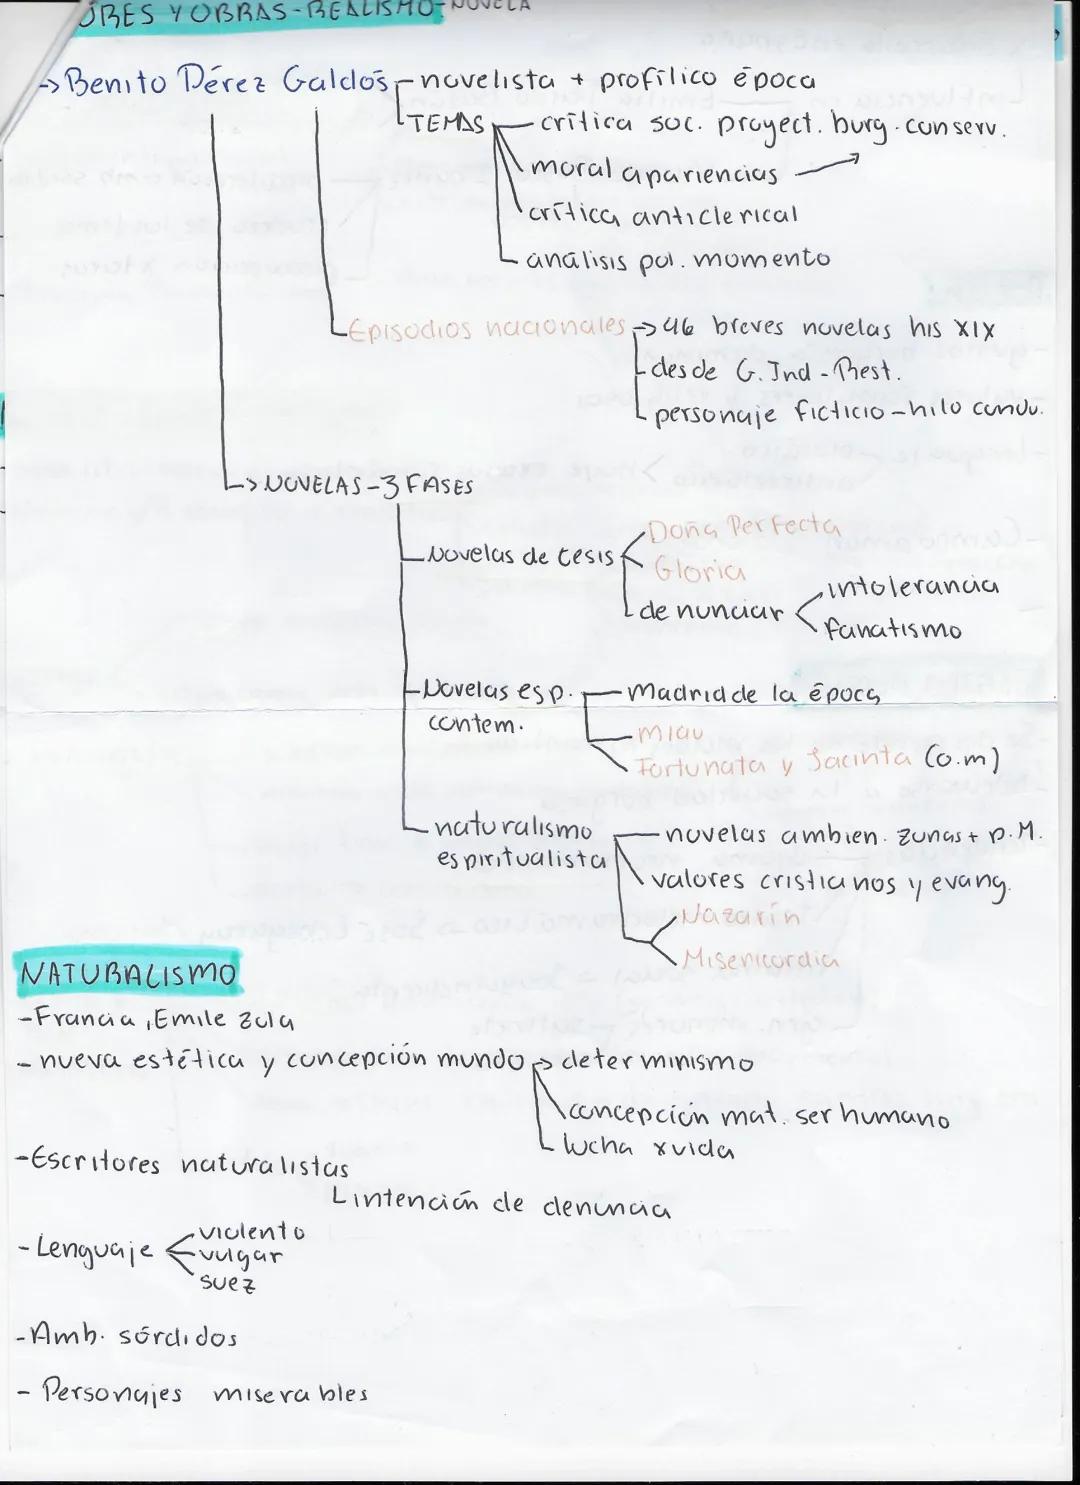 ORES Y OBRAS-REALISMO-NOVELA
-> Benito Pérez Galdós - novelista + profílico época
TEMAS - crítica soc. proyect. burg. conserv.
moral apariencias
crítica anticlerical
análisis pol. momento
Episodios nacionales -> 46 breves novelas his XIX
desde G. Ind - Rest.
personaje ficticio - hilo condu.
-> NOVELAS - 3 FASES
Novelas de tesis
Doña Perfecta
Gloria
denunciar
intolerancia
fanatismo
Novelas esp. - Madrid de la época
contem.
- Miau
Fortunata y Jacinta (o.m)
naturalismo - novelas ambien. zonas + p.M.
espiritualista
valores cristianos y evang.
Nazarín
Misericordia
NATURALISMO
- Francia, Emile Zola
- nueva estética y concepción mundo -> determinismo
concepción mat. ser humano
lucha x vida
- Escritores naturalistas
intención de denuncia
- Lenguaje
violento
vulgar
suez
- Amb. sórdidos
- Personajes miserables